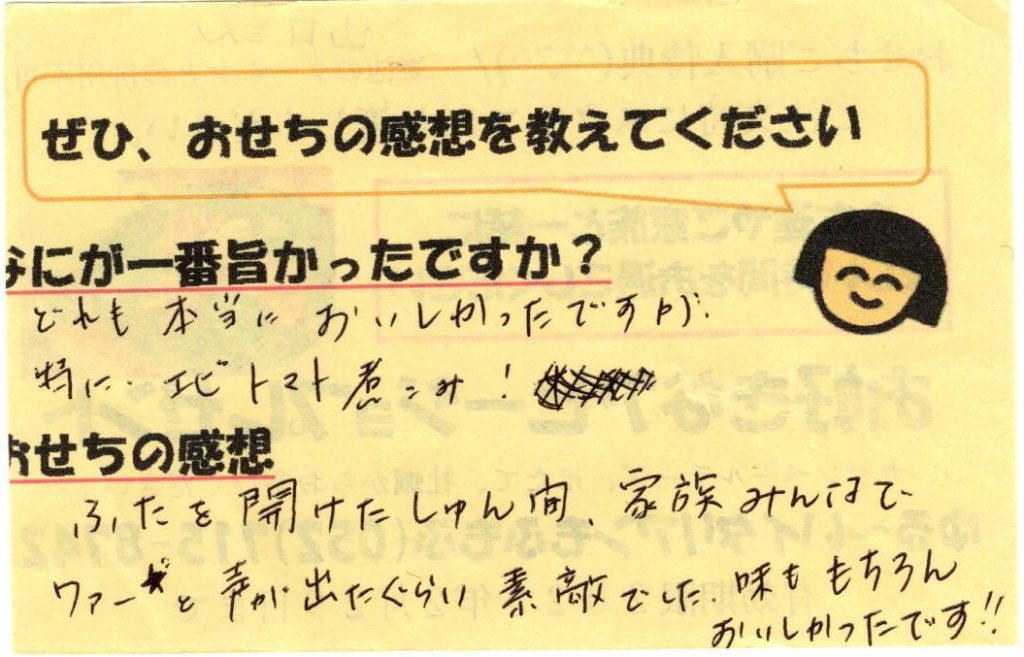 ぜひ、おせちの感想を教えてください
なにが一番旨かったですか？
どれも本当に おいしかったですが、
特に、エビトマト煮こみ！
おせちの感想
ふたを開けたしゅん間、家族みんなで
ワァー★と声が出たぐらい素敵でした。味ももちろん
おいしかったです!!